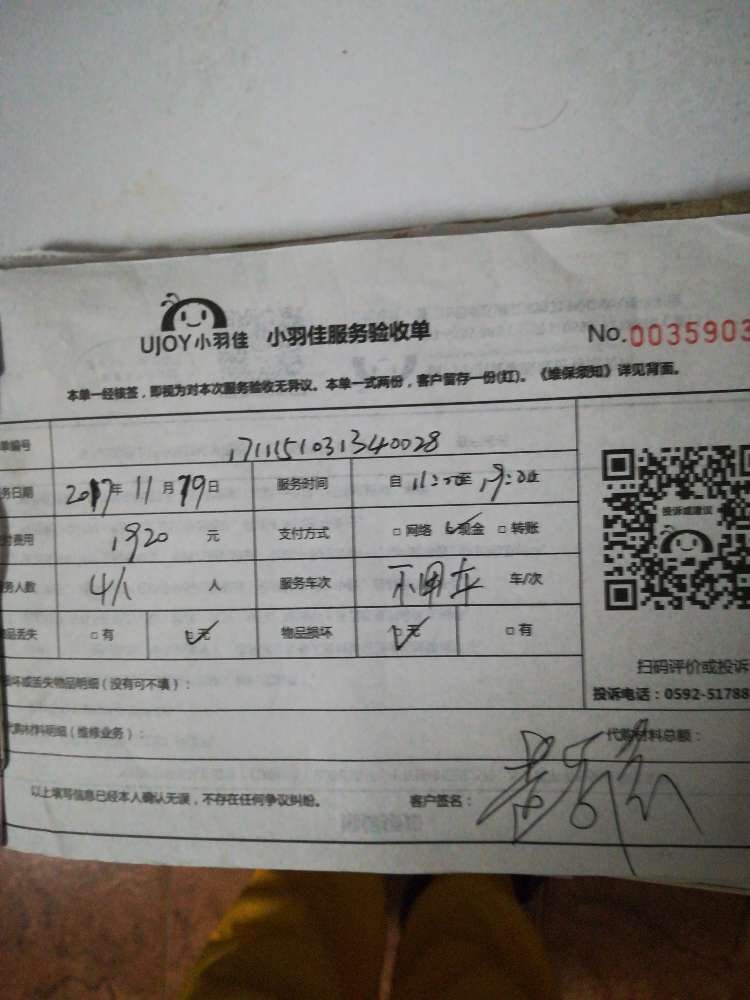 UJOY小羽佳 小羽佳服务验收单 No.0035903
本单一经核签，即视为对本次服务验收无异议。本单一式两份，客户留存一份(红)。《维保须知》详见背面。
单编号 1711151031340028
务日期 2017年 11月 19日 服务时间 自 至 止
费用 1920 元 支付方式 □ 网络 □ 现金 □ 转账
务人数 4人 人 服务车次 不用车 车/次
品丢失 □ 有 □ 无 物品损坏 □ 无 □ 有
投诉或建议
扫码评价或投诉
投诉电话：0592-51788
损坏或丢失物品明细（没有可不填）：
代购材料明细（维修业务）： 代购材料总额：
以上填写信息已经本人确认无误，不存在任何争议纠纷。 客户签名：